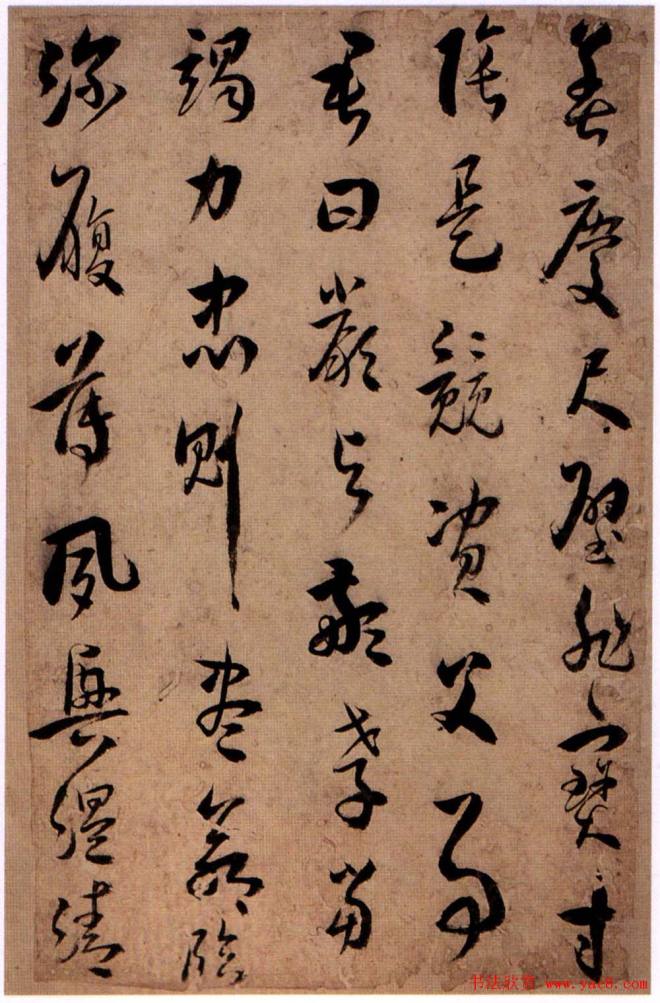 善慶尺璧非寶寸
陰是競資父事
君曰嚴與敬孝當
竭力忠則盡命臨
深履薄夙興溫凊
书法欣赏 www.yac8.com